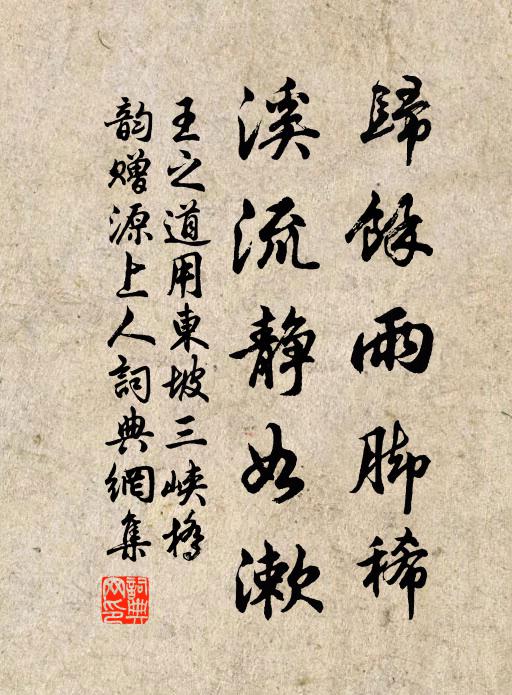 歸餘雨脚稀
溪流静如漱
王之道用東坡三峡橋
韵赠源上人詞典網集
詞典網印